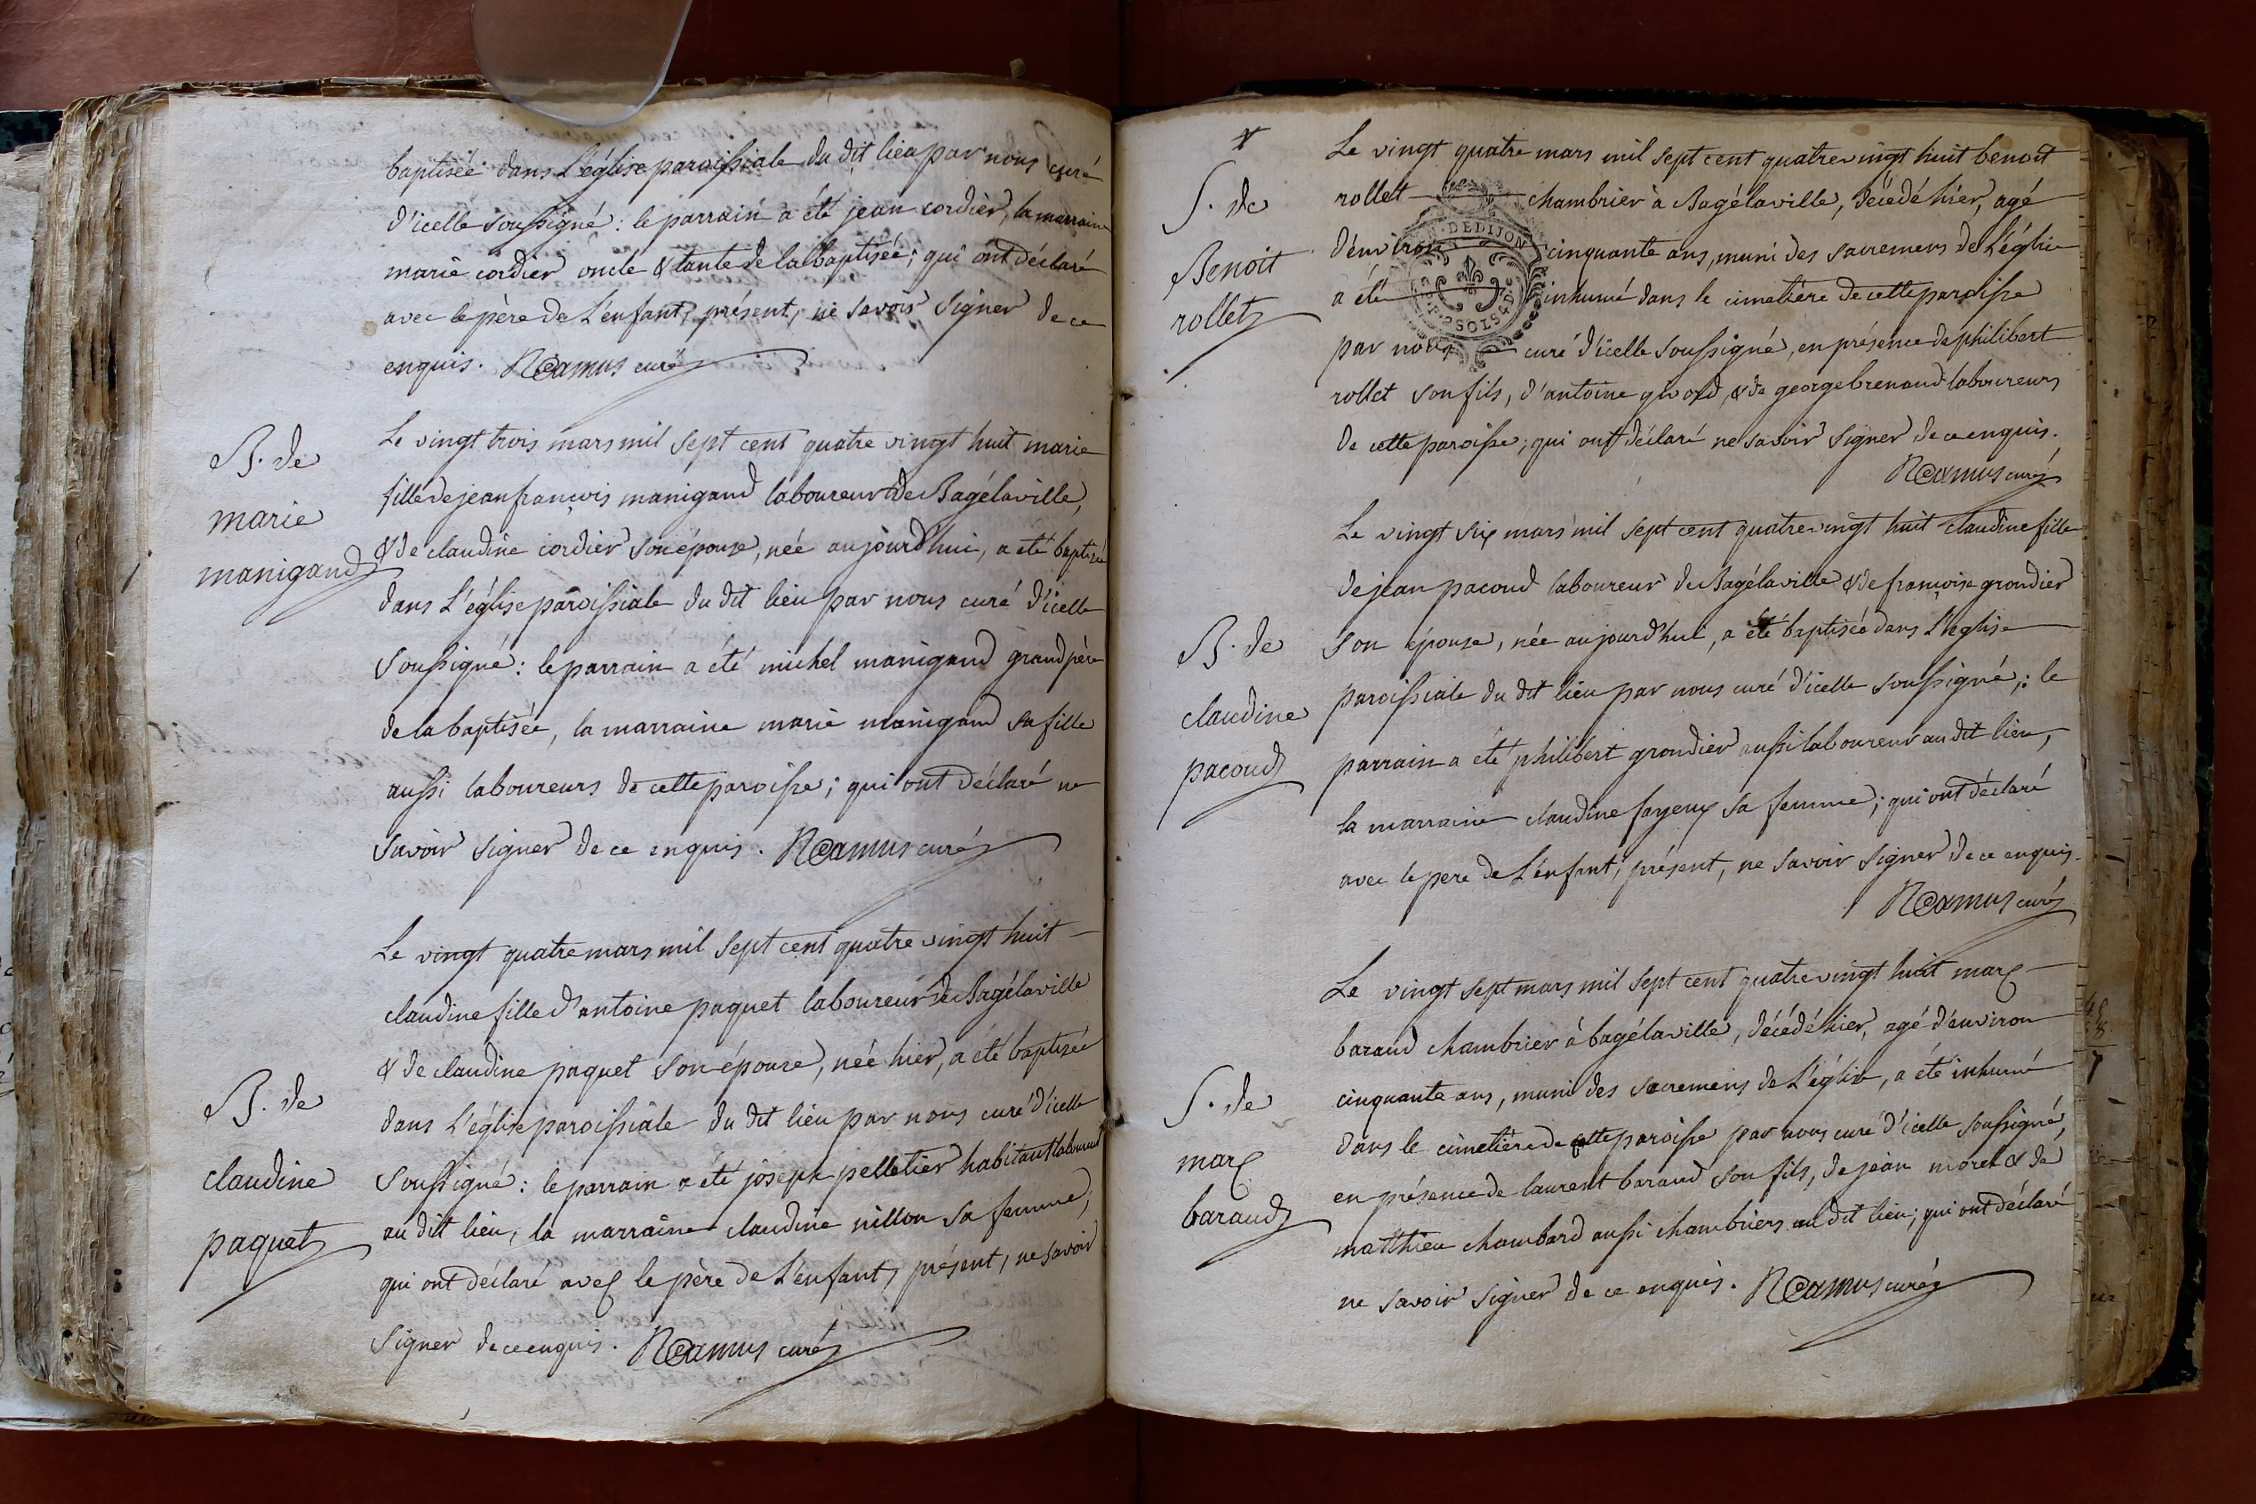 baptisée dans L'église paroissiale du dit lieu par nous curé
d'icelle soussigné : le parrain a été jean cordier, la marraine
marie cordier oncle & tante de la baptisée ; qui ont déclaré
avec le père de L'enfant, présent, ne savoir signer de ce
enquis. Camus curé
B. de
marie
manigand
Le vingt trois mars mil sept cent quatre vingt huit marie
fille de jean françois manigand laboureur de Bagélaville,
& de claudine cordier son épouse, née aujourd'hui, a été baptisée
dans L'église paroissiale du dit lieu par nous curé d'icelle
soussigné : le parrain a été michel manigand grand père
de la baptisée, la marraine marie manigand sa fille
aussi laboureurs de cette paroisse ; qui ont déclaré ne
savoir signer de ce enquis. Camus curé
B. de
claudine
paquet
Le vingt quatre mars mil sept cent quatre vingt huit
claudine fille d'antoine paquet laboureur de Bagélaville
& de claudine paquet son épouse, née hier, a été baptisée
dans L'église paroissiale du dit lieu par nous curé d'icelle
soussigné : le parrain a été joseph pelletier habitant laboureur
au dit lieu, la marraine claudine nillon sa femme ;
qui ont déclaré avec le père de L'enfant, présent, ne savoir
signer de ce enquis. Camus curé
S. de
Benoit
rollet
Le vingt quatre mars mil sept cent quatre vingt huit benoit
rollet chambrier à Bagélaville, décédé hier, agé
d'environ cinquante ans, muni des sacremens de L'église
a été inhumé dans le cimetière de cette paroisse
par nous curé d'icelle soussigné, en présence de philibert
rollet son fils, d'antoine & de george brenaud laboureurs
de cette paroisse ; qui ont déclaré ne savoir signer de ce enquis.
Camus curé
DEDIJON
B. de
claudine
pacoud
Le vingt six mars mil sept cent quatre vingt huit claudine fille
de jean pacoud laboureur de Bagélaville & de françoise grondier
son épouse, née aujourd'hui, a été baptisée dans L'église
paroissiale du dit lieu par nous curé d'icelle soussigné ; : le
parrain a été philibert grondier aussi laboureur au dit lieu,
la marraine claudine fayeux sa femme ; qui ont déclaré
avec le père de L'enfant, présent, ne savoir signer de ce enquis.
Camus curé
S. de
marc
baraud
Le vingt sept mars mil sept cent quatre vingt huit marc
baraud chambrier à bagélaville, décédé hier, agé d'environ
cinquante ans, muni des sacremens de L'église, a été inhumé
dans le cimetière de cette paroisse par nous curé d'icelle soussigné,
en présence de laurent baraud son fils, de jean morel & de
matthieu chambard aussi chambriers au dit lieu ; qui ont déclaré
ne savoir signer de ce enquis. Camus curé